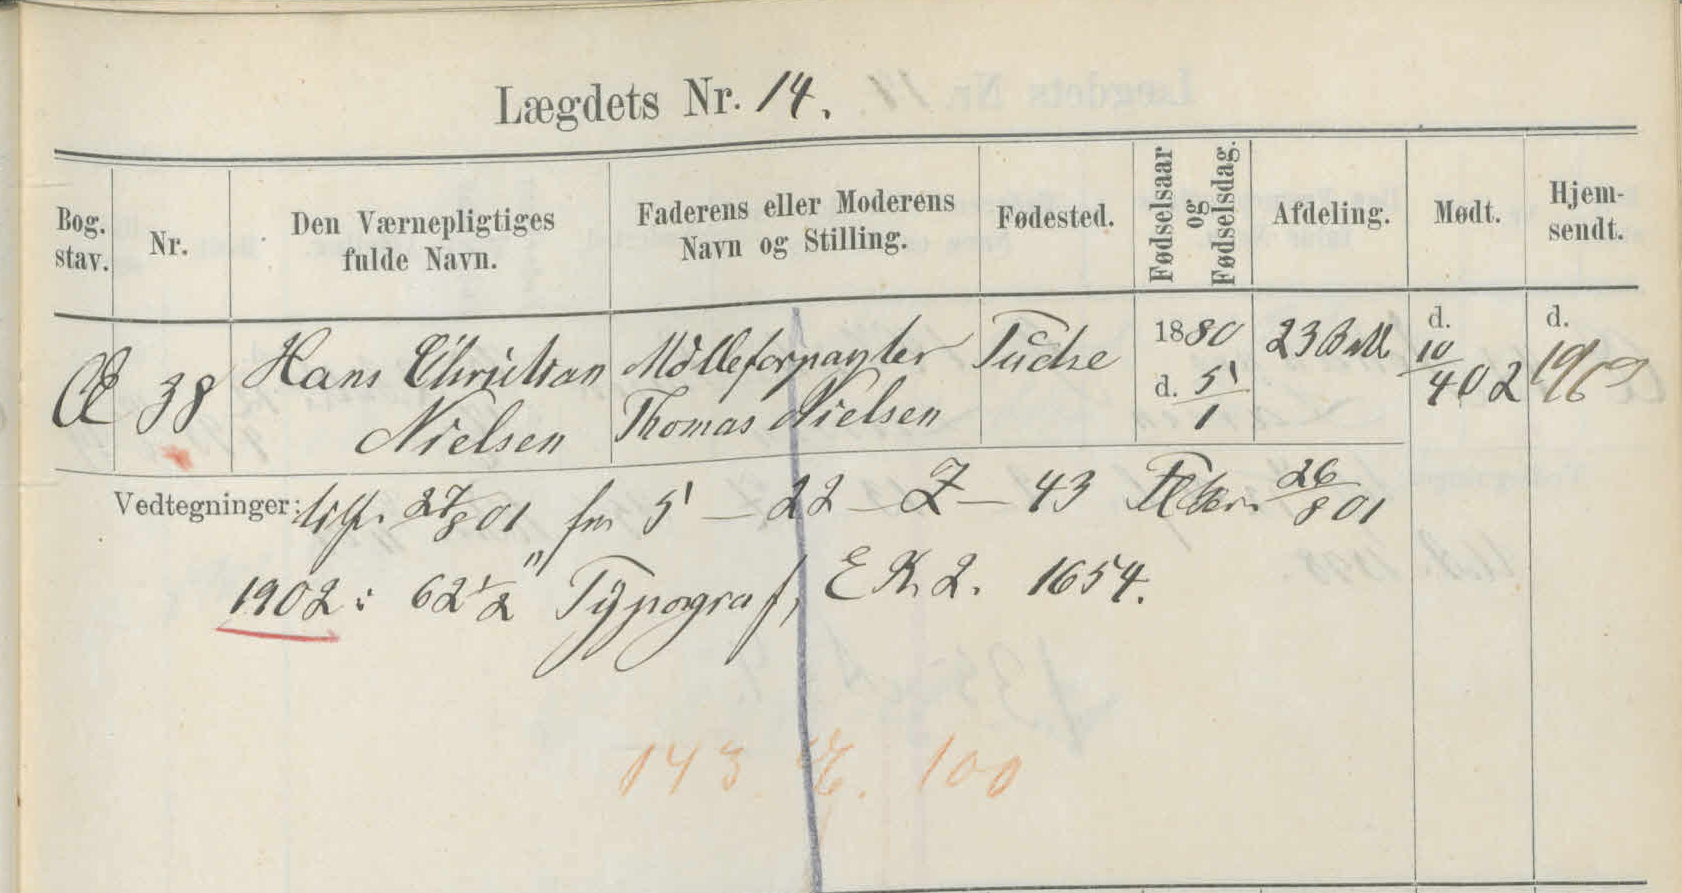 Lægdets Nr. 14.
Bog. stav.
Nr.
Den Værnepligtiges fulde Navn.
Faderens eller Moderens Navn og Stilling.
Fødested.
Fødselsaar og Fødselsdag.
Afdeling.
Mødt.
Hjem- sendt.
Æ 38
Hans Christian
Nielsen
Mølleforpagter
Thomas Nielsen
Tudse
1880
d. 5/1
23 Batl
d. 10/4 02
d.
Vedtegninger: 27/8 01 fra 5 - 22 - Z - 43 26/8 01
1902: 62 1/2" Typograf, E K. 2. 1654.
143. Æ. 100